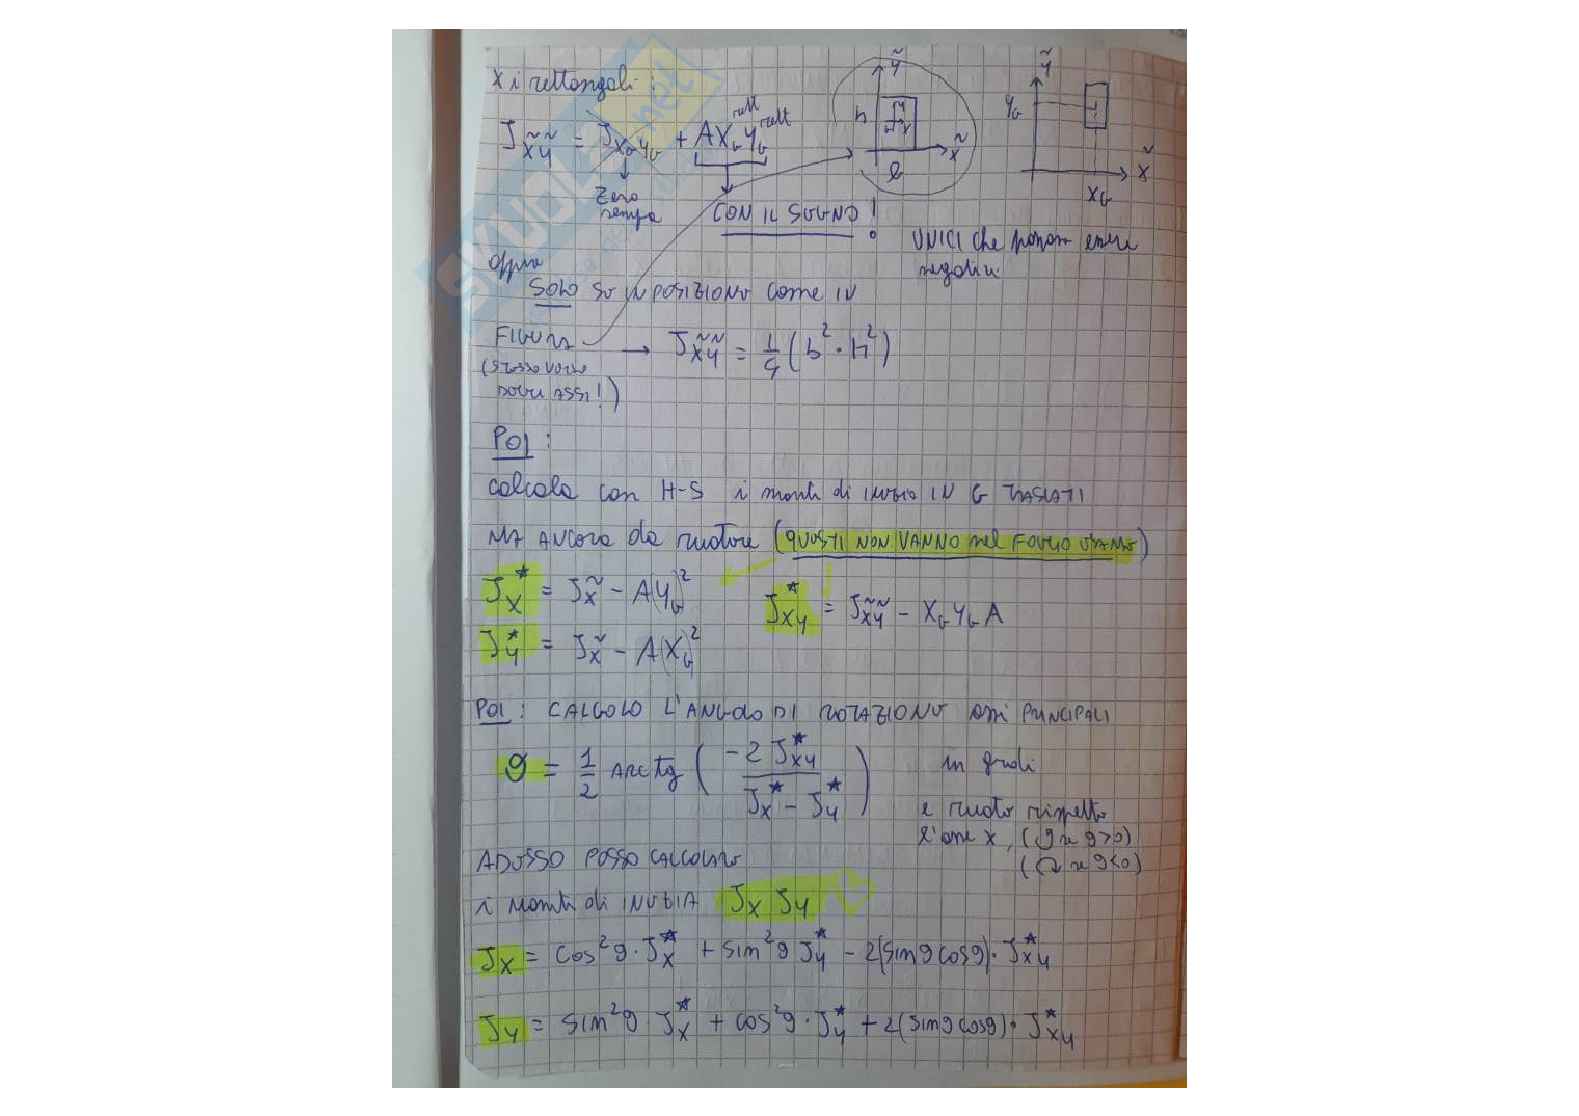 X i rettangoli:
J x̃ỹ = J XG YG + A XG^rett YG^rett
Zero sempre
CON IL SEGNO!
ỹ
h
x̃
b
ỹ
yG
x̃
XG
UNICI che possono essere
negativi
oppure
SOLO SE IN POSIZIONE COME IN
FIGURA → J x̃ỹ = 1/4 (b² · h²)
(STESSO VERSO
DEGLI ASSI!)
POI:
calcola con H-S i momenti di inerzia IN G TRASLATI
MA ANCORA da ruotare (QUESTI NON VANNO nel FOGLIO ESAME)
Jx* = Jx̃ - A(yG)²
Jxy* = Jx̃ỹ - XG yG A
Jy* = Jx̃ - A(XG)²
POI: CALCOLO L'ANGOLO DI ROTAZIONE assi PRINCIPALI
φ = 1/2 ARCtg (-2 Jxy* / Jx* - Jy*) in gradi
e ruoto rispetto
l'asse x, (↺ se φ>0)
(↻ se φ<0)
ADESSO POSSO CALCOLARE
i Momenti di INERZIA Jx Jy
Jx = cos²φ · Jx* + sin²φ Jy* - 2(sinφ cosφ) · Jxy*
Jy = sin²φ · Jx* + cos²φ · Jy* + 2(sinφ cosφ) · Jxy*
SKUOLA.net